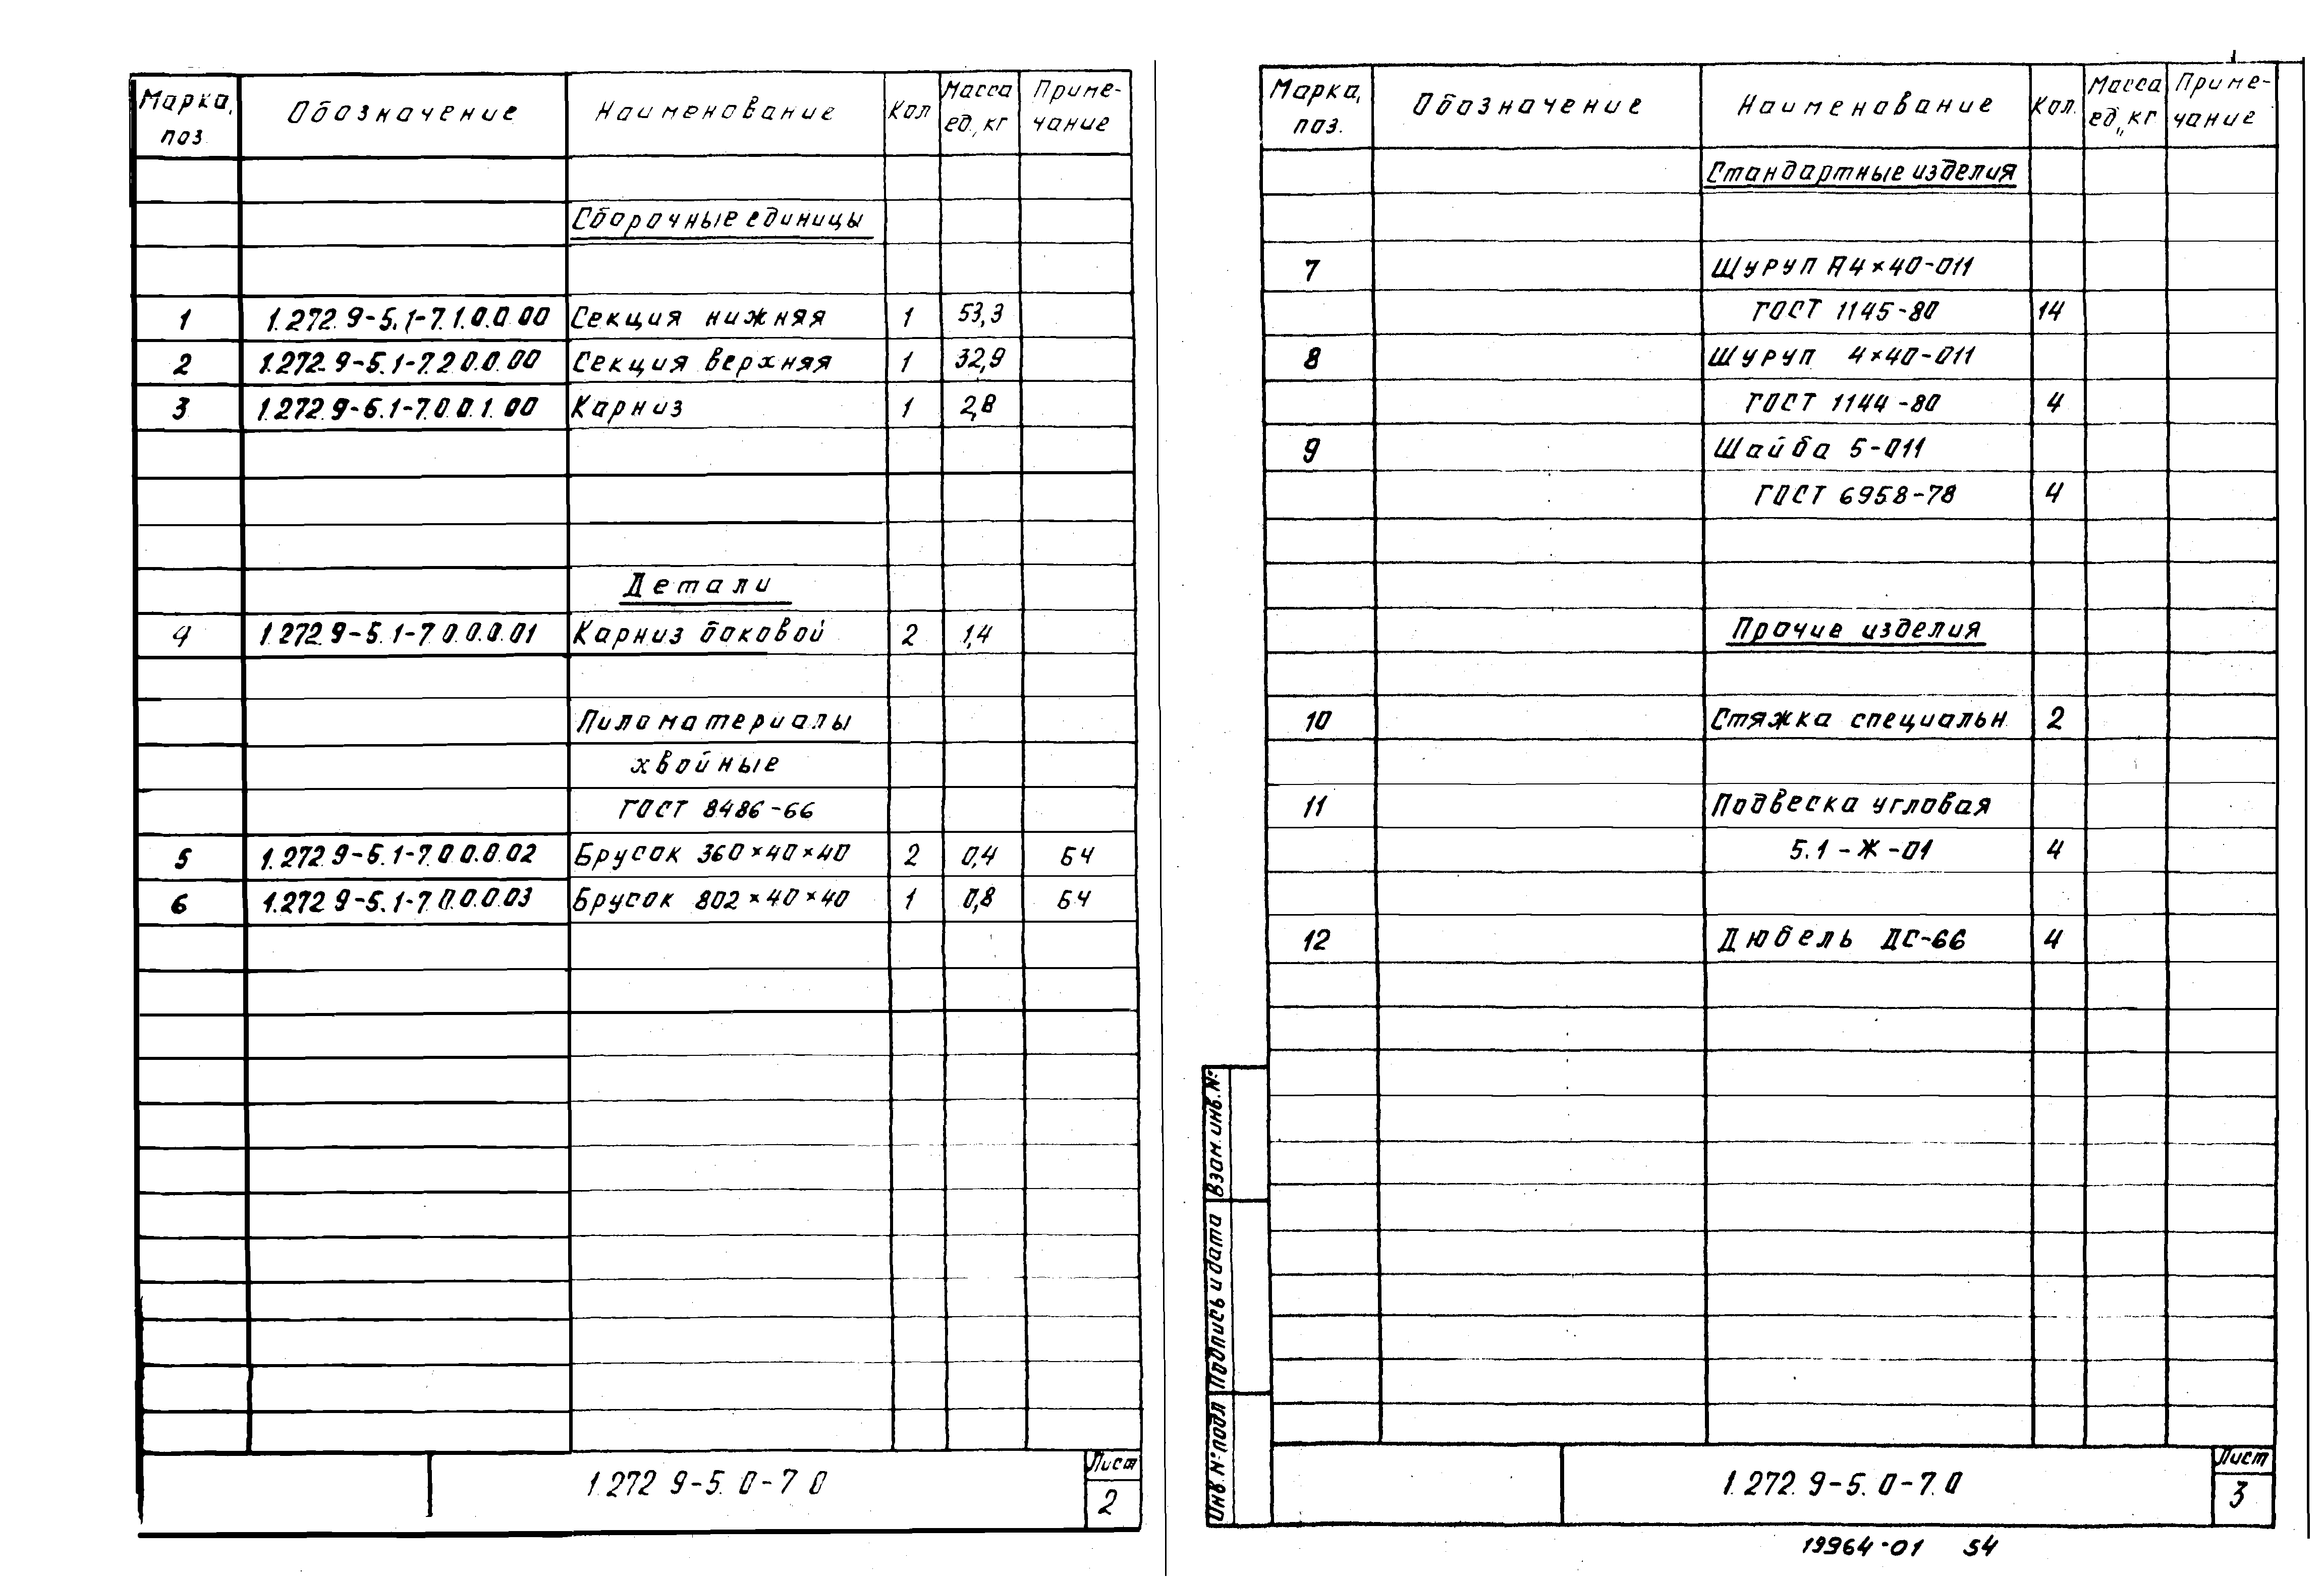 Марка, поз. Обозначение Наименование Кол Масса ед., кг Приме-чание
Сборочные единицы
1 1.272.9-5.1-7.1.0.0.00 Секция нижняя 1 53,3
2 1.272.9-5.1-7.2.0.0.00 Секция верхняя 1 32,9
3 1.272.9-5.1-7.0.0.1.00 Карниз 1 2,8
Детали
4 1.272.9-5.1-7.0.0.0.01 Карниз боковой 2 1,4
Пиломатериалы
хвойные
ГОСТ 8486-66
5 1.272.9-5.1-7.0.0.0.02 Брусок 360×40×40 2 0,4 БЧ
6 1.272.9-5.1-7.0.0.0.03 Брусок 802×40×40 1 0,8 БЧ
1.272.9-5.0-7.0
Лист
2
Марка, поз. Обозначение Наименование Кол. Масса ед., кг Приме-чание
Стандартные изделия
7 Шуруп А4×40-011
ГОСТ 1145-80 14
8 Шуруп 4×40-011
ГОСТ 1144-80 4
9 Шайба 5-011
ГОСТ 6958-78 4
Прочие изделия
10 Стяжка специальн 2
11 Подвеска угловая
5.1-Ж-01 4
12 Дюбель ДС-66 4
Взам.инв.№
Подпись и дата
Инв.№подл
1.272.9-5.0-7.0
Лист
3
19964-01 54